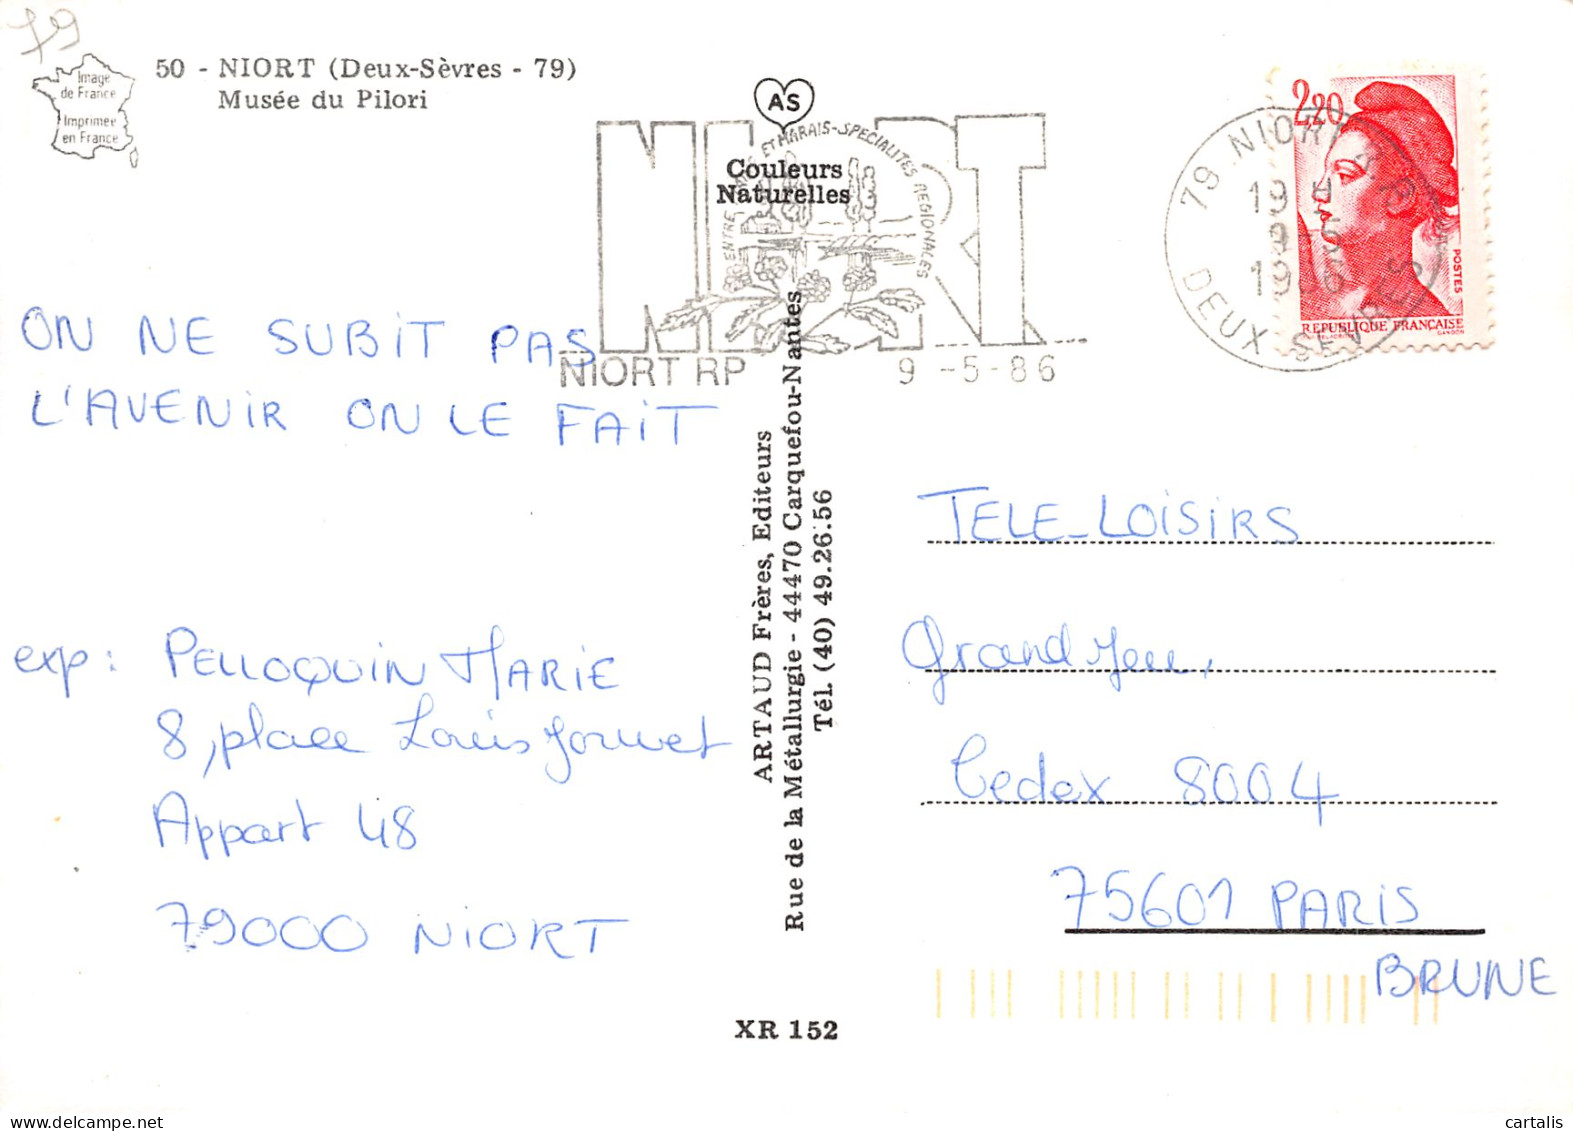 79
Image
de France
Imprimée
en France
50 - NIORT (Deux-Sèvres - 79)
Musée du Pilori
AS
Couleurs
Naturelles
NIORT
ET MARAIS-SPECIALITES REGIONALES
NIORT RP 9-5-86
79 NIORT R.P.
19 H
9-5
1986
DEUX SEVRES
2,20
POSTES
REPUBLIQUE FRANÇAISE
GANDON
ON NE SUBIT PAS
L'AVENIR ON LE FAIT
exp: PELLOQUIN MARIE
8, place Louis Jouvet
Appart 48
79000 NIORT
ARTAUD Frères, Editeurs
Rue de la Métallurgie - 44470 Carquefou-Nantes
Tél. (40) 49.26.56
XR 152
TELE-LOISIRS
Grand Jeu,
Cedex 8004
75601 PARIS
BRUNE
cartalis